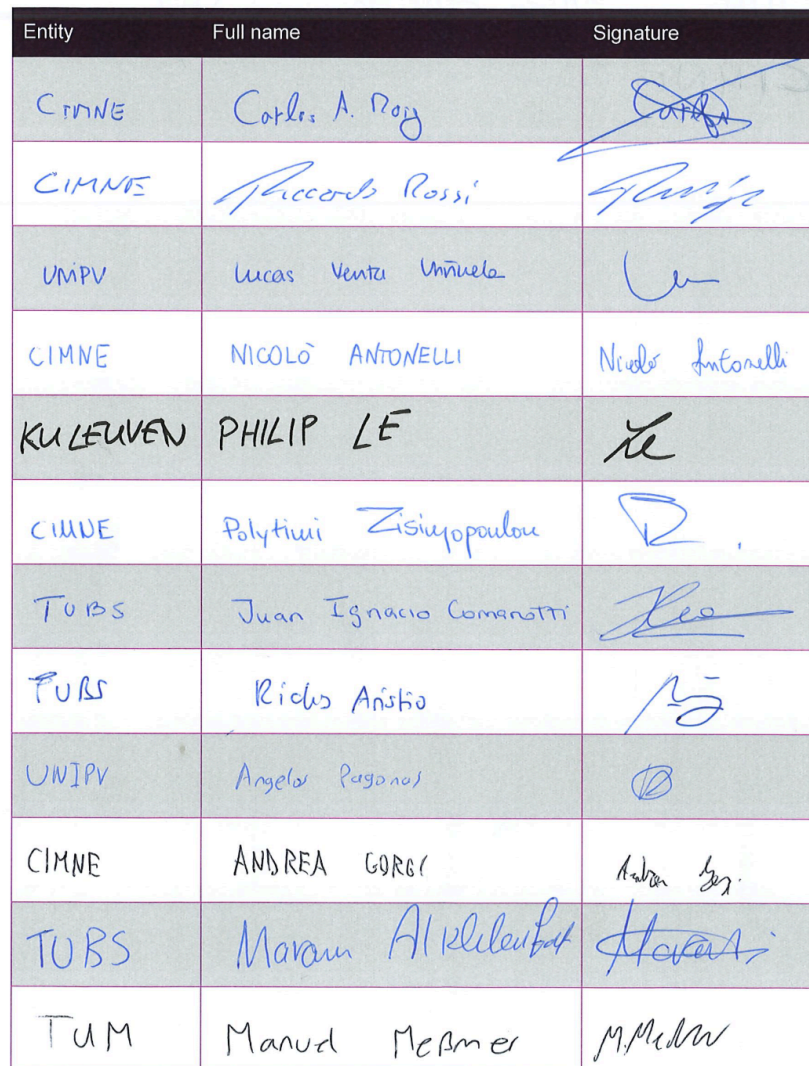 Entity Full name Signature
CIMNE Carlos A. Roig
CIMNE Riccardo Rossi
UNIPV Lucas Venta Viñuela
CIMNE NICOLÒ ANTONELLI Nicolò Antonelli
KU LEUVEN PHILIP LE Le
CIMNE Polytimi Zisimopoulou
TUBS Juan Ignacio Comanotti
TUBS Richo Aristio
UNIPV Angelos Pagonas
CIMNE ANDREA GORGI
TUBS Maram
TUM Manuel Meßmer